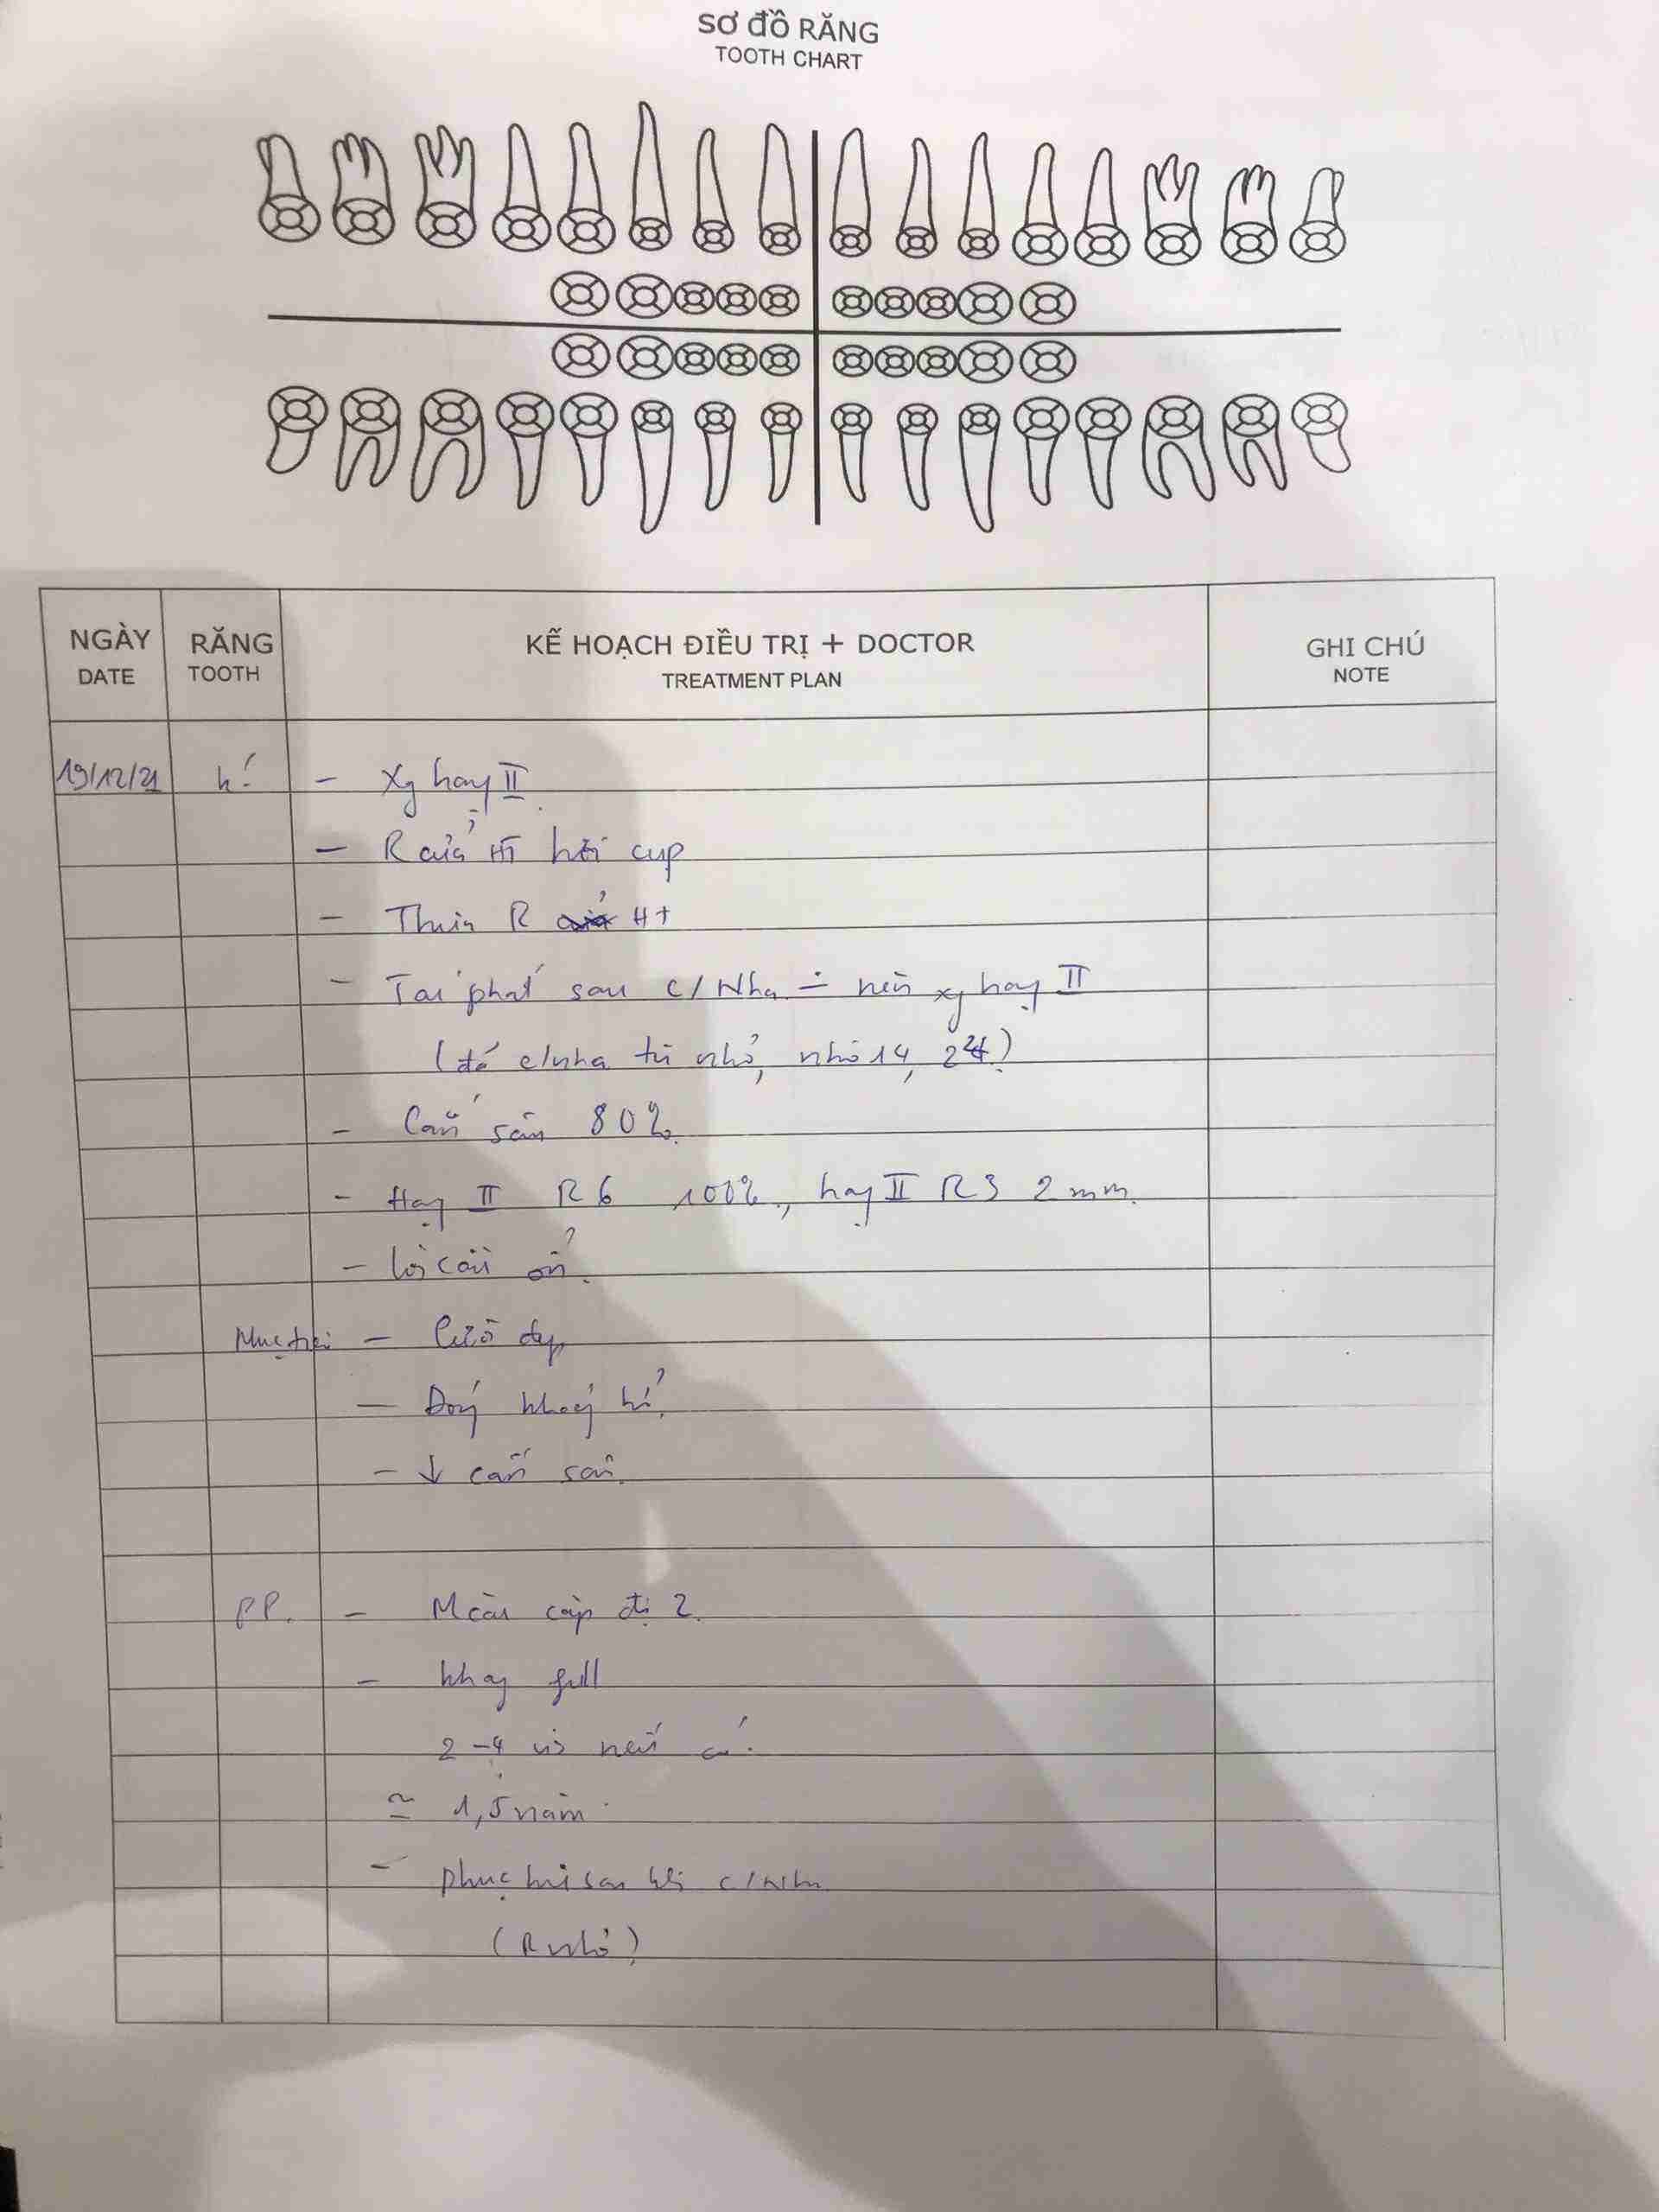 SƠ ĐỒ RĂNG
TOOTH CHART
NGÀY RĂNG KẾ HOẠCH ĐIỀU TRỊ + DOCTOR GHI CHÚ
DATE TOOTH TREATMENT PLAN NOTE
19/12/21 - Xg hạng II
- R cửa HT hơi cụp
- Thiếu R HT
- Tái phát sau c/Nha nền xg hạng II
(đã c/nha từ nhỏ, nhổ 14, 24)
- Cắn sâu 80%
- Hạng II R6 100%, hạng II R3 2mm.
- ổn.
Mục tiêu - đẹp
- Đóng khoảng hở
- ↓ cắn sâu.
P.P. - Mcài cấp độ 2.
- khay full
2-4 vis nếu có.
≃ 1,5 năm.
- phục hình sau khi c/Nha
(R nhỏ)